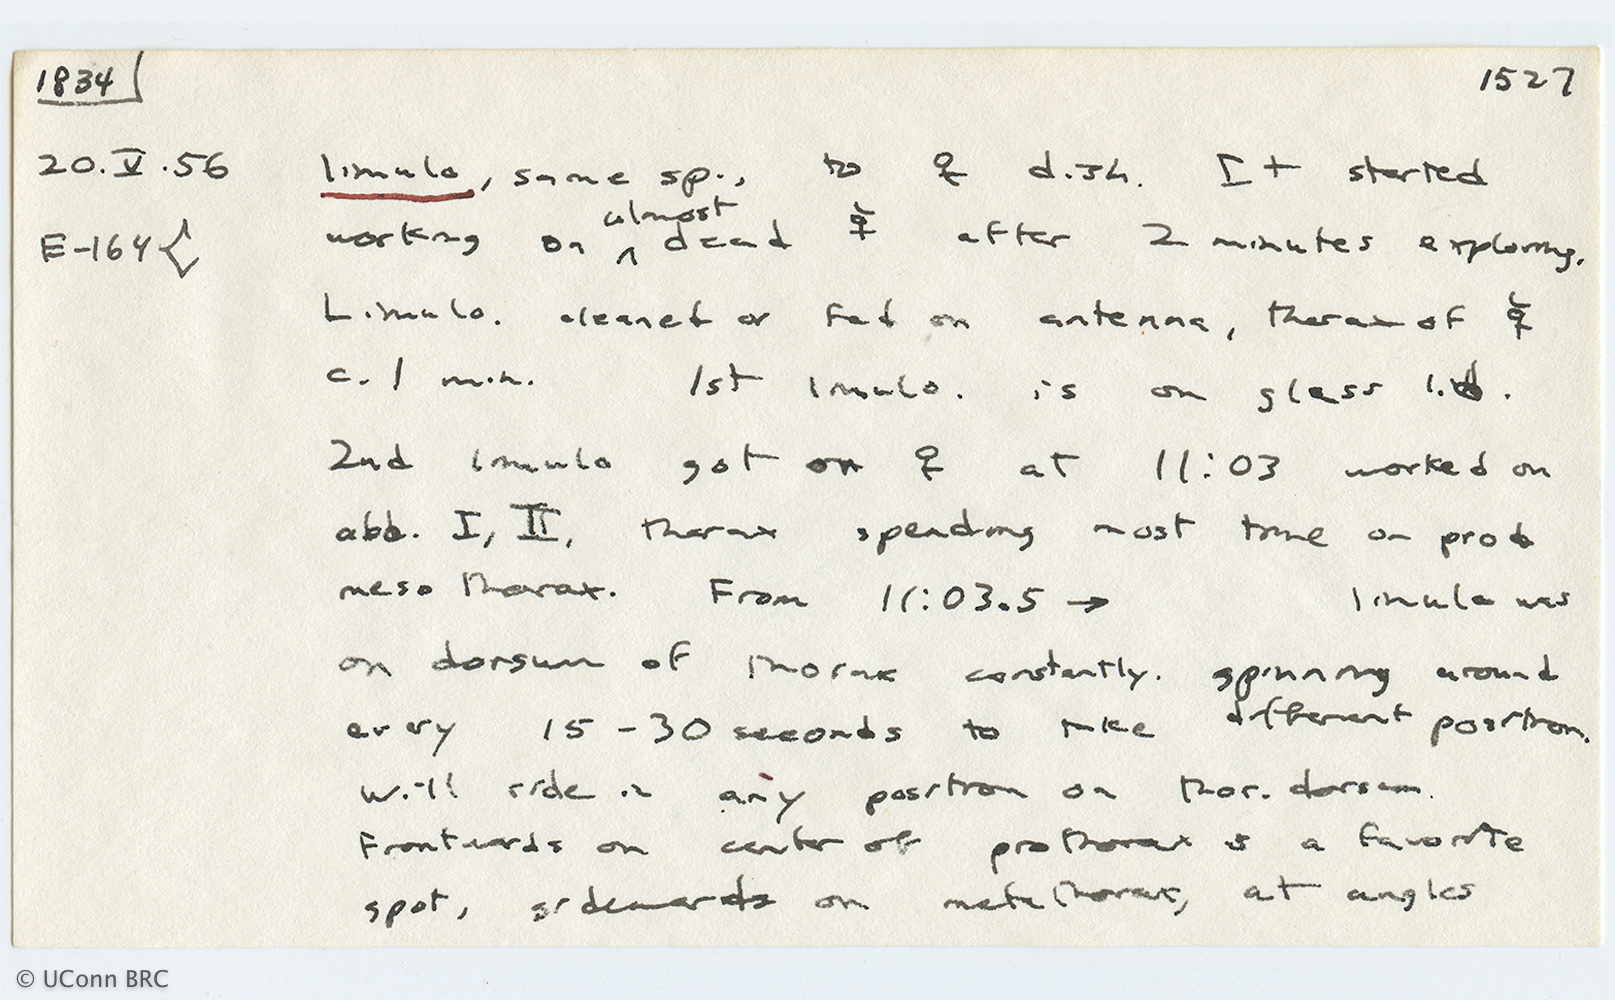 1834
1527
20.V.56 limulo, same sp., to ♀ dish. It started
E-164 working on almost dead ☿ after 2 minutes exploring.
Limulo. cleaned or fed on antenna, thorax of ☿
c. 1 min. 1st limulo. is on glass lid.
2nd limulo got on ♀ at 11:03 worked on
abd. I, II, thorax spending most time on pro &
meso thorax. From 11:03.5 → limulo was
on dorsum of thorax constantly. spinning around
every 15-30 seconds to take different position.
Will ride in any position on thor. dorsum.
Frontwards on center of prothorax is a favorite
spot, sidewards on metathorax, at angles
© UConn BRC